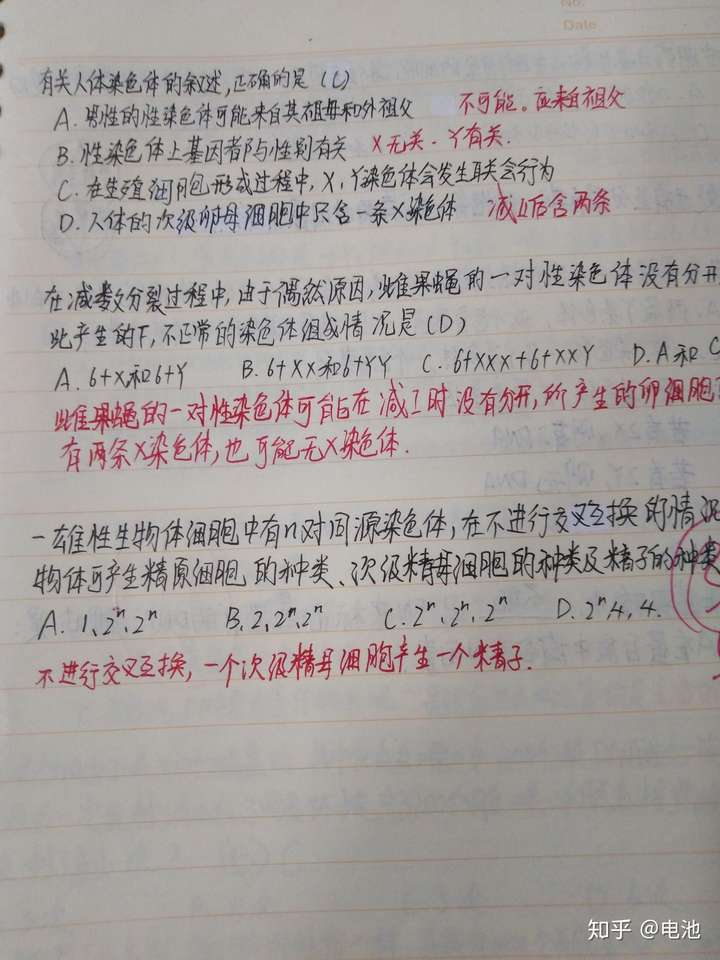 No.
Date
有关人体染色体的叙述,正确的是(C)
A. 男性的性染色体可能来自其祖母和外祖父 不可能。应来自祖父
B. 性染色体上基因都与性别有关 X无关. Y有关.
C. 在生殖细胞形成过程中, X, Y染色体会发生联会行为
D. 人体的次级卵母细胞中只含一条X染色体 减Ⅱ后含两条
在减数分裂过程中, 由于偶然原因, 雌果蝇的一对性染色体没有分开,
此产生的F, 不正常的染色体组成情况是(D)
A. 6+X和6+Y B. 6+XX和6+YY C. 6+XXX+6+XXY D. A和C
雌果蝇的一对性染色体可能在减I时没有分开, 所产生的卵细胞
有两条X染色体, 也可能无X染色体.
一雄性生物体细胞中有n对同源染色体, 在不进行交叉互换的情况
物体可产生精原细胞的种类、次级精母细胞的种类及精子的种类
A. 1、2ⁿ、2ⁿ B. 2、2ⁿ、2ⁿ C. 2ⁿ、2ⁿ、2ⁿ D. 2ⁿ、4、4.
不进行交叉互换, 一个次级精母细胞产生一个精子.
知乎 @电池